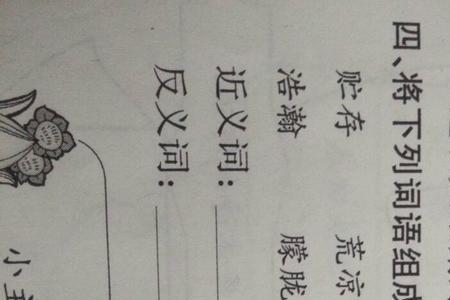 四、将下列词语组成
贮存 荒凉
浩瀚 朦胧
近义词：
反义词：
小